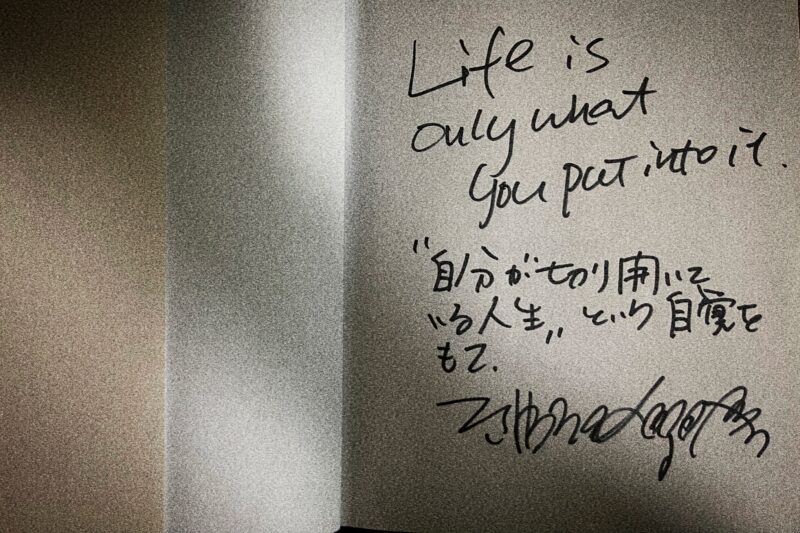 Life is
only what
you put into it.
"自分が切り開いて
いる人生"という自覚を
もて.